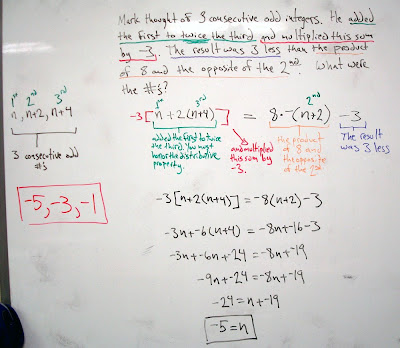 Mark thought of 3 consecutive odd integers. He added
the first to twice the third and multiplied this sum
by -3. The result was 3 less than the product
of 8 and the opposite of the 2nd. What were
the #s?
1st 2nd 3rd
n, n+2, n+4
3 consecutive odd
#s
-5, -3, -1
1st 3rd 2nd
-3[n + 2(n+4)] = 8·-(n+2) -3
added the first to twice
the third. You must
honor the distributive
property.
and multiplied
this sum by
-3.
the product
of 8 and
the opposite
of the 2nd.
The result
was 3 less
-3[n+2(n+4)] = -8(n+2)-3
-3n+-6(n+4) = -8n+-16-3
-3n+-6n+-24 = -8n+-19
-9n+-24 = -8n+-19
-24 = n+-19
-5 = n